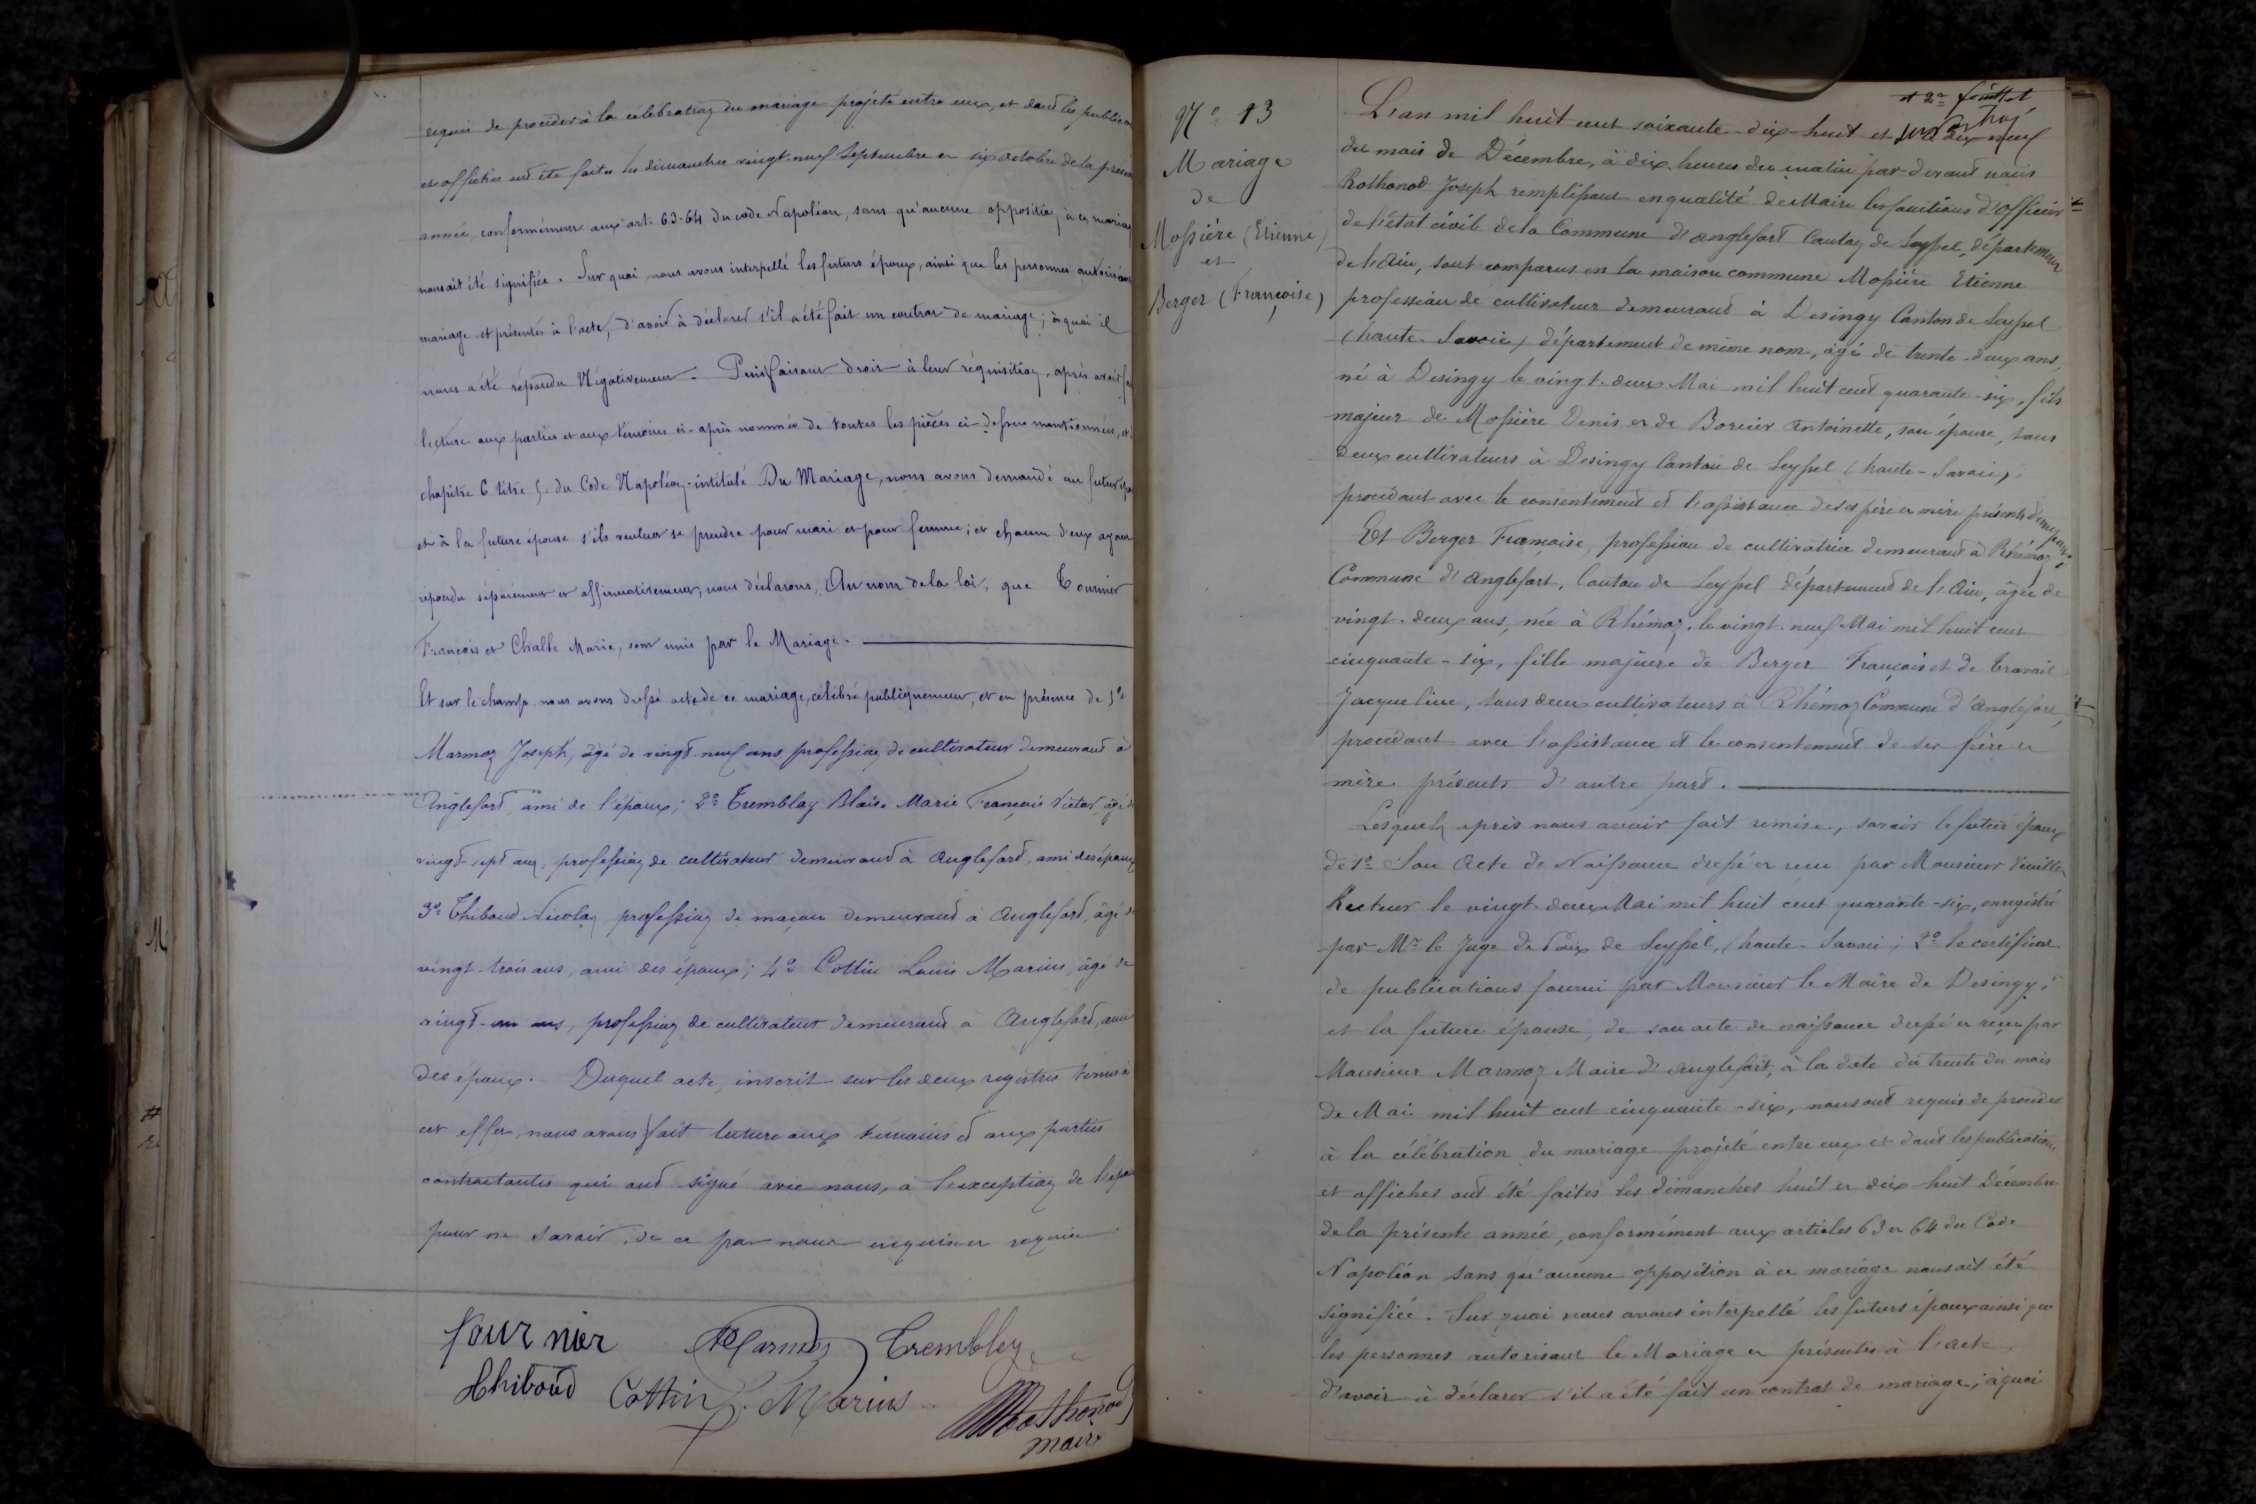 requis de procéder à la célébration du mariage projeté entre eux, et dont les publicat
et affiches ont été faites les dimanches vingt-neuf Septembre et six octobre de la présen
année conformément aux art. 63-64 du code Napoléon, sans qu'aucune opposition à ce mariag
nous ait été signifiée. Sur quoi nous avons interpellé les futurs époux, ainsi que les personnes autorisan
mariage et présentes à l'acte, d'avoir à déclarer s'il a été fait un contrat de mariage; à quoi il
nous a été répondu Négativement. Puis faisant droit à leur réquisition, après avoir fa
lecture aux parties et aux témoins ci-après nommés de toutes les pièces ci-dessus mentionnées, et
chapitre 6 titre 5 du Code Napoléon intitulé Du Mariage, nous avons demandé au futur ép
et à la future épouse s'ils veulent se prendre pour mari et pour femme; et chacun d'eux ayant
répondu séparément et affirmativement, nous déclarons, Au nom de la loi, que Tournier
François et Challe Marie, sont unis par le Mariage.
Et sur le champ nous avons dressé acte de ce mariage, célébré publiquement, et en présence de 1º
Marmoz Joseph, âgé de vingt-neuf ans profession de cultivateur demeurant à
Anglefort, ami de l'époux; 2º Tremblay Blaise Marie François Victor, âgé d
vingt-sept ans, profession de cultivateur demeurant à Anglefort, ami des époux
3º Thiboud Nicolas, profession de maçon demeurant à Anglefort, âgé d
vingt-trois ans, ami des époux; 4º Cottin Louis Marius, âgé de
vingt-un ans, profession de cultivateur demeurant à Anglefort, ami
des époux. Duquel acte, inscrit sur les deux registres tenus à
cet effet, nous avons fait lecture aux témoins et aux parties
contractantes qui ont signé avec nous, à l'exception de l'épou
pour ne savoir, de ce par nous enquise et requise
fournier Marmoz Trembley
Thiboud Cottin Marius Rothonod
maire
Nº 13
Mariage
de
Mossière (Etienne)
et
Berger (Françoise)
et 2e feuillet
L'an mil huit cent soixante-dix-huit et le dix-neuf
du mois de Décembre, à dix heures du matin par-devant nous
Rothonod Joseph remplissant en qualité de Maire les fonctions d'officier
de l'état civil de la Commune d'Anglefort Canton de Seyssel, département
de l'Ain, sont comparus en la maison commune Mossière Etienne
profession de cultivateur demeurant à Desingy Canton de Seyssel
(haute-Savoie) département de même nom, âgé de trente-deux ans,
né à Desingy le vingt-deux Mai mil huit cent quarante-six, fils
majeur de Mossière Denis et de Borcier Antoinette, son épouse, tous
deux cultivateurs à Desingy Canton de Seyssel (haute-Savoie),
procédant avec le consentement et l'assistance de ses père et mère présents d'une part;
Et Berger Françoise, profession de cultivatrice demeurant à Rhémoz,
Commune d'Anglefort, Canton de Seyssel département de l'Ain, âgée de
vingt-deux ans, née à Rhémoz, le vingt-neuf Mai mil huit cent
cinquante-six, fille majeure de Berger François et de Travail
Jacqueline, tous deux cultivateurs à Rhémoz Commune d'Anglefort,
procédant avec l'assistance et le consentement de ses père et
mère présents d'autre part.
Lesquels après nous avoir fait remise, savoir le futur époux
de 1º Son Acte de Naissance dressé et reçu par Monsieur
Recteur le vingt-deux Mai mil huit cent quarante-six, enregistré
par Mr le Juge de Paix de Seyssel, (haute-Savoie; 2º le certificat
de publications fourni par Monsieur le Maire de Desingy;
et la future épouse, de son acte de naissance dressé et reçu par
Monsieur Marmoz Maire d'Anglefort, à la date du trente du mois
de Mai mil huit cent cinquante-six, nous ont requis de procéder
à la célébration du mariage projeté entre eux et dont les publications
et affiches ont été faites les dimanches huit et dix-huit Décembre
de la présente année, conformément aux articles 63 et 64 du Code
Napoléon sans qu'aucune opposition à ce mariage nous ait été
signifiée. Sur quoi nous avons interpellé les futurs époux ainsi que
les personnes autorisant le Mariage et présentes à l'acte
d'avoir à déclarer s'il a été fait un contrat de mariage; à quoi